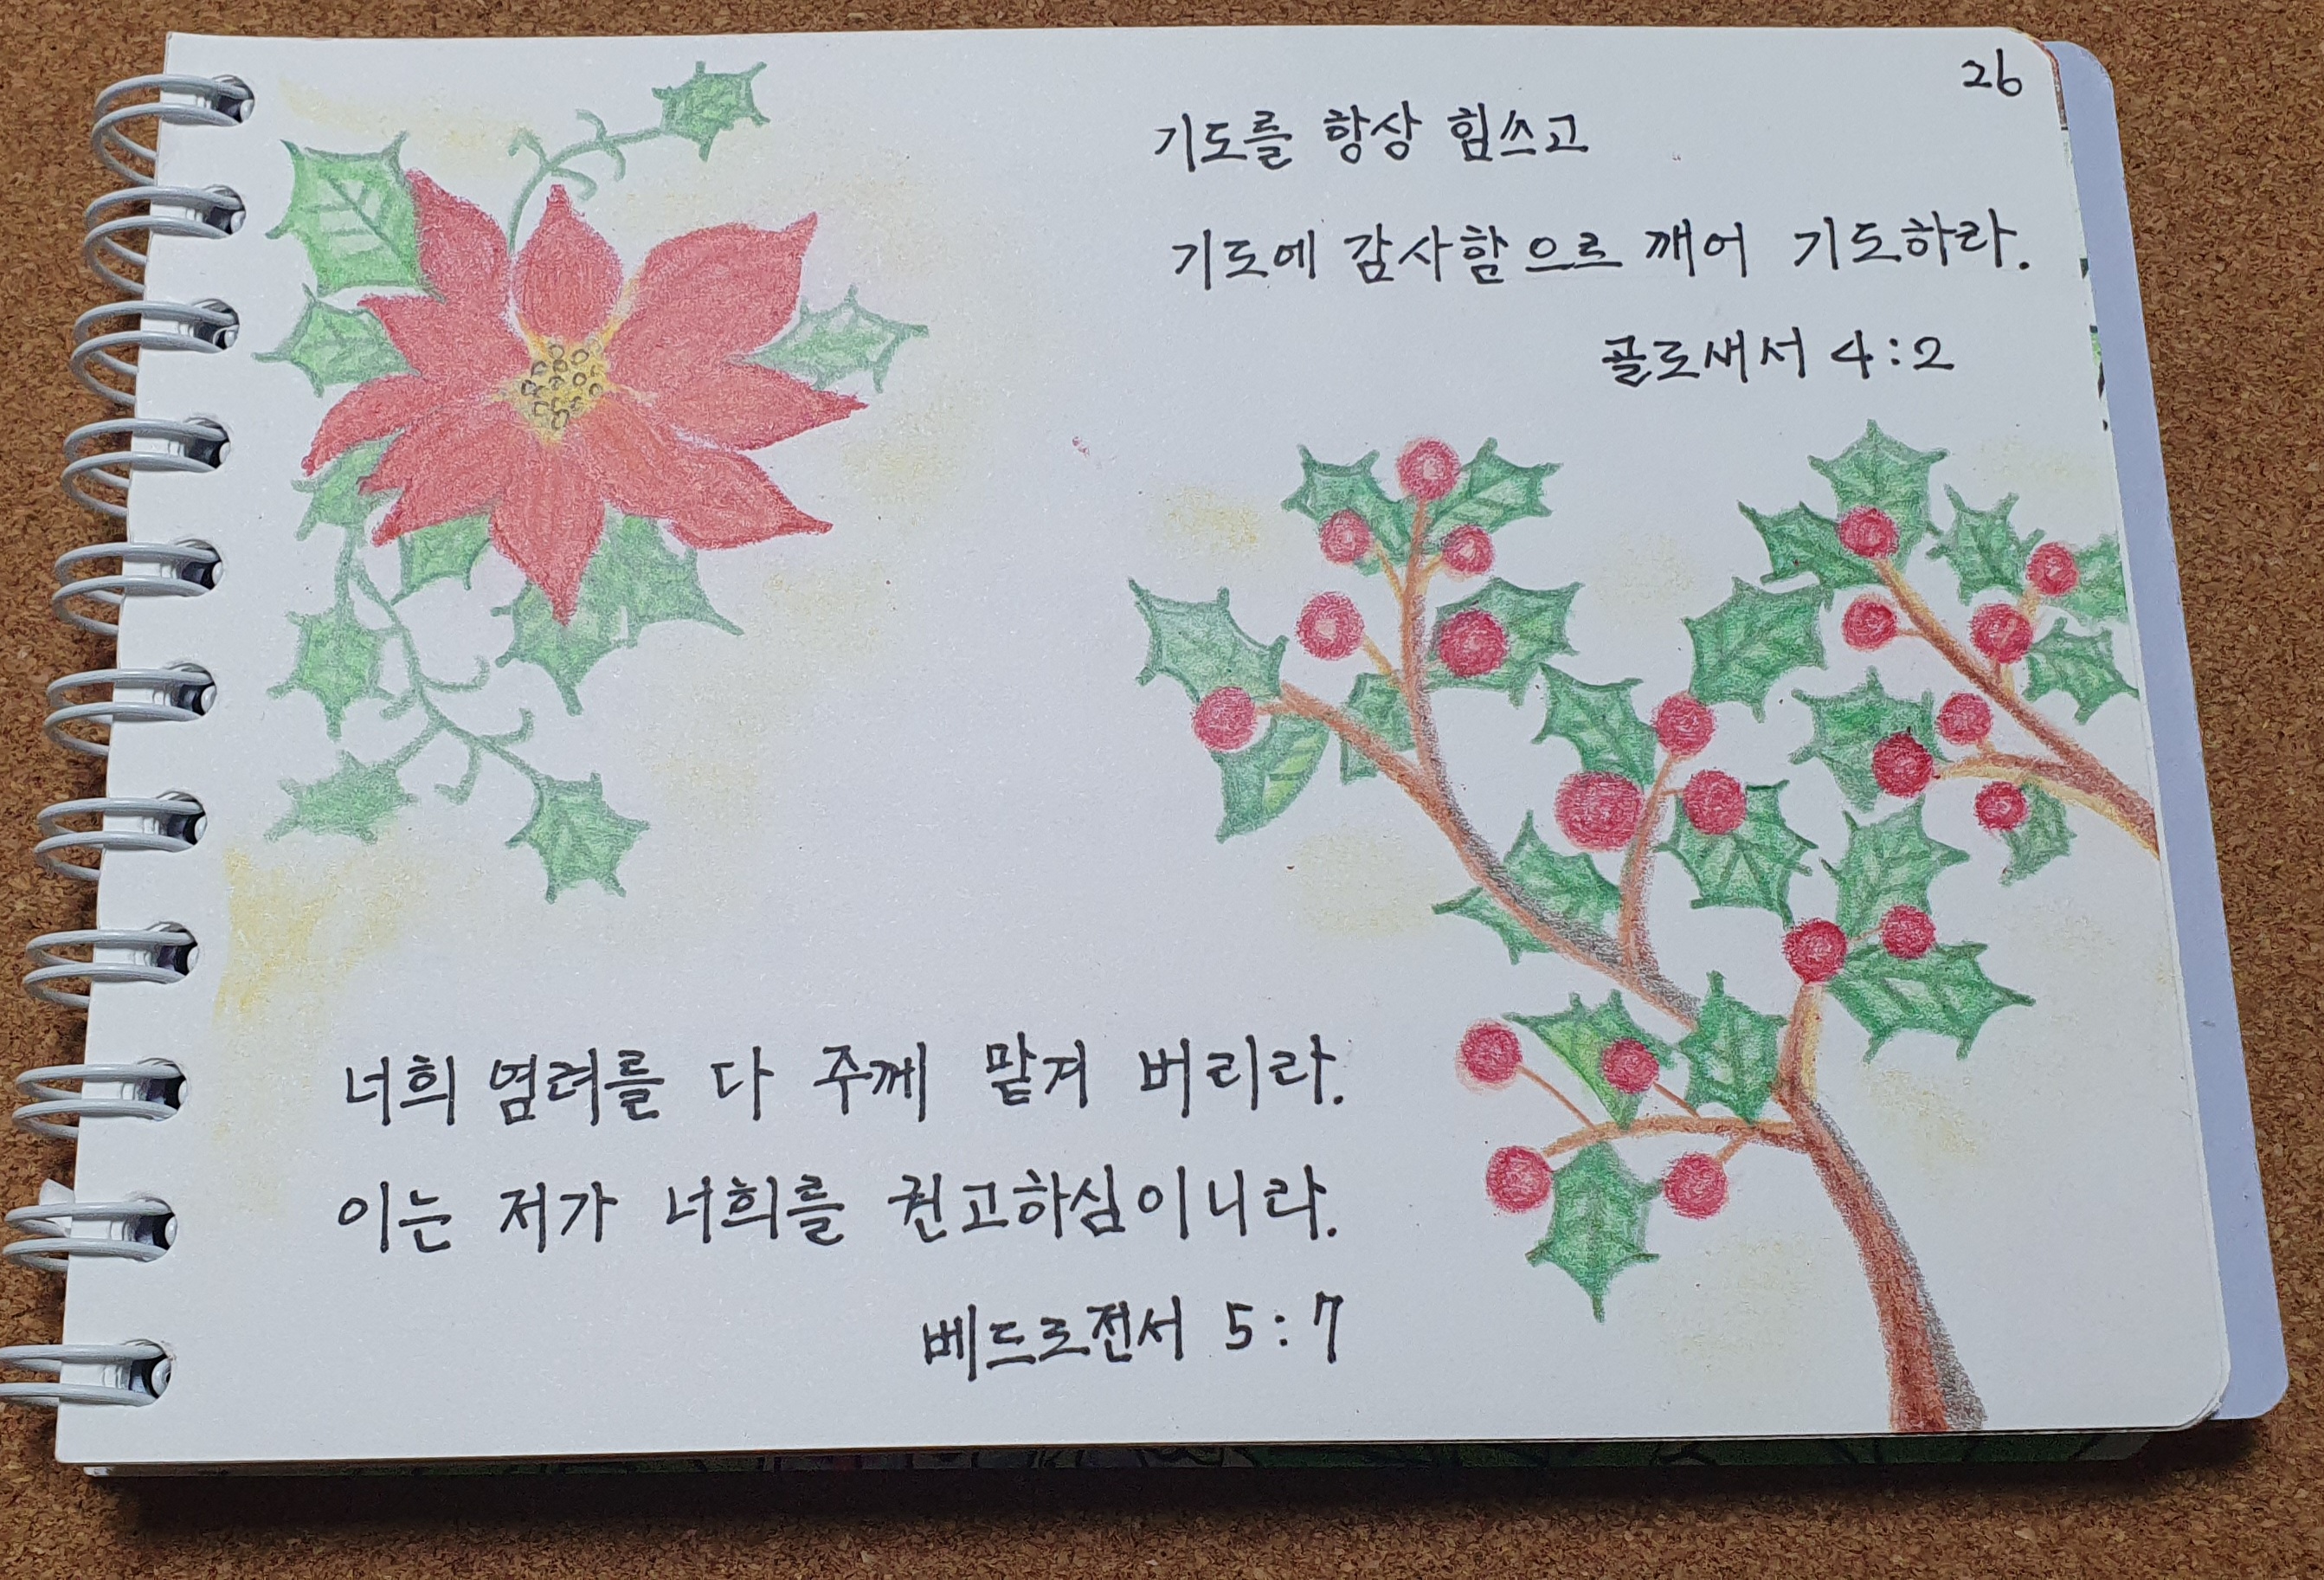 26
기도를 항상 힘쓰고
기도에 감사함으로 깨어 기도하라.
골로새서 4:2
너희 염려를 다 주께 맡겨 버리라.
이는 저가 너희를 권고하심이니라.
베드로전서 5:7